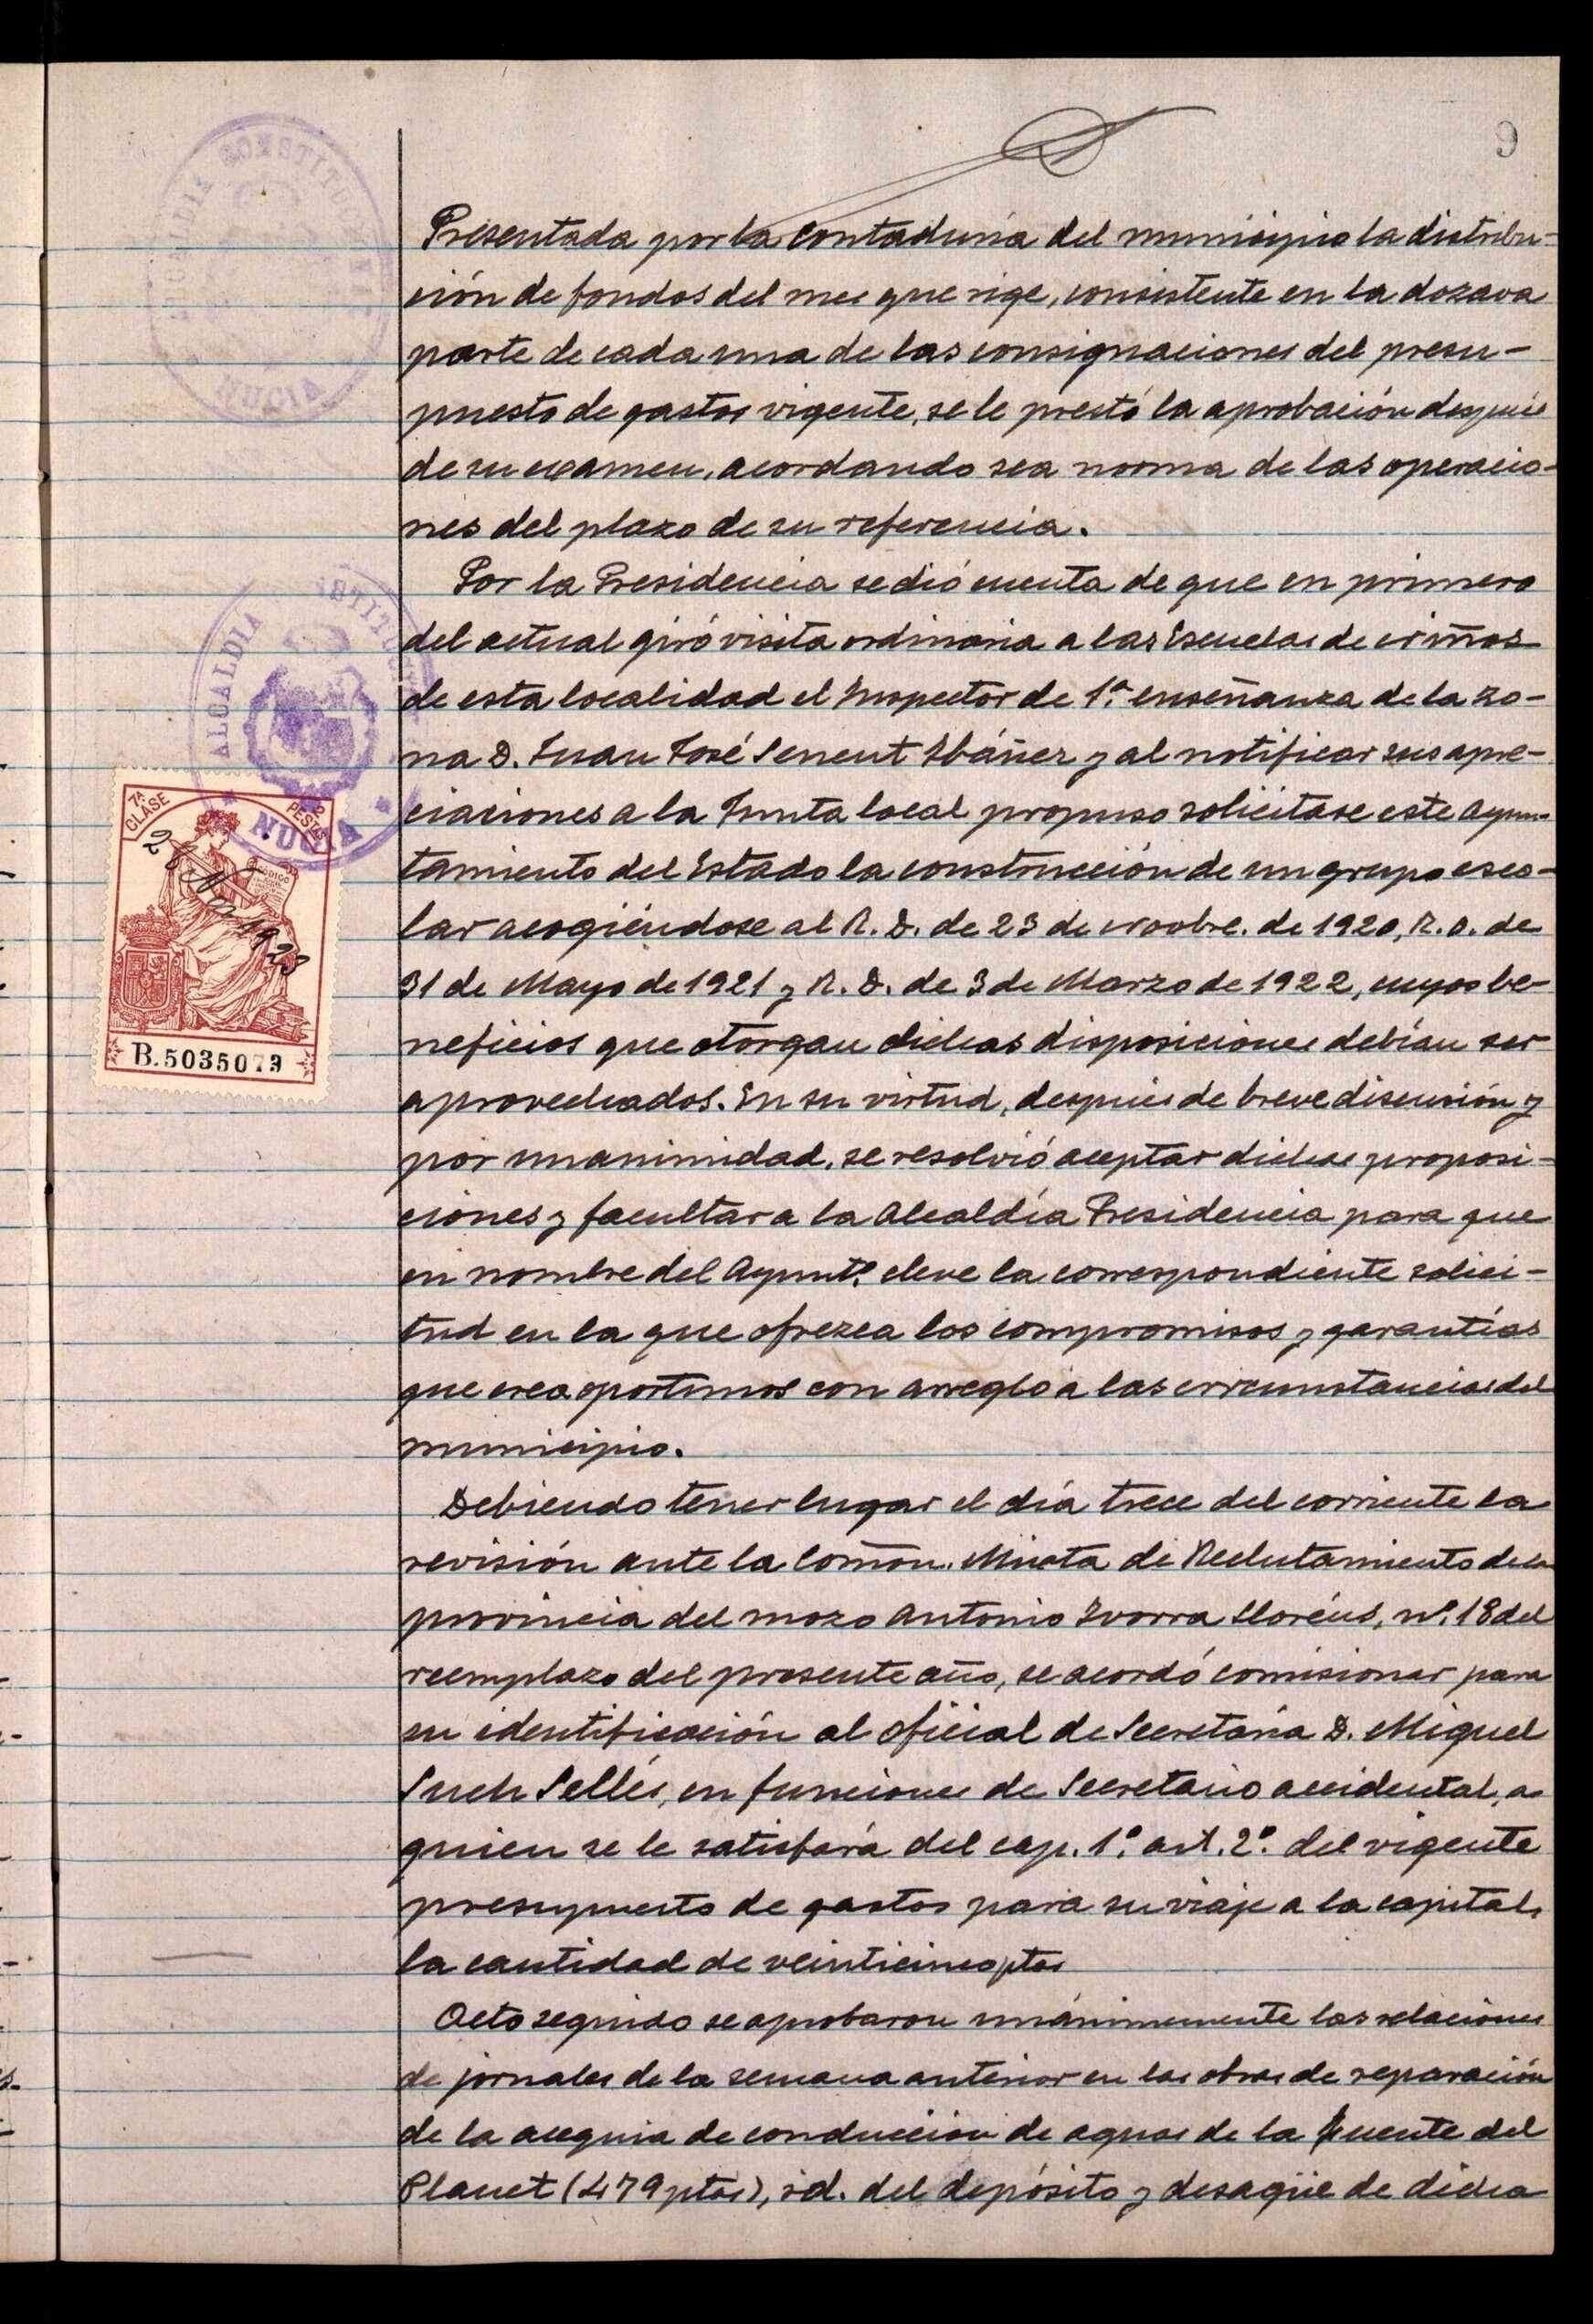 9
Presentada por la contaduría del municipio la distribu-
ción de fondos del mes que rige, consistente en la dozava
parte de cada una de las consignaciones del presu-
puesto de gastos vigente, se le prestó la aprobación después
de su examen, acordando sea norma de las operacio-
nes del plazo de su referencia.
Por la Presidencia se dió cuenta de que en primero
del actual giró visita ordinaria a las Escuelas de niños
de esta localidad el Inspector de 1ª. enseñanza de la zo-
na D. Juan José Senent Ibáñez y al notificar sus apre-
ciaciones a la Junta local propuso solicitase este Ayun-
tamiento del Estado la construcción de un grupo esco-
lar acogiéndose al R. D. de 23 de novbre. de 1920, R. O. de
31 de Mayo de 1921 y R. D. de 3 de Marzo de 1922, cuyos be-
neficios que otorgan dichas disposiciones debían ser
aprovechados. En su virtud, después de breve discusión y
por unanimidad, se resolvió aceptar dichas proposi-
ciones y facultar a la Alcaldía Presidencia para que
en nombre del Ayuntº. eleve la correspondiente solici-
tud en la que ofrezca los compromisos y garantías
que crea oportunos con arreglo a las circunstancias del
municipio.
Debiendo tener lugar el día trece del corriente la
revisión ante la Comon. Mixta de Reclutamiento de la
provincia del mozo Antonio Ivorra Lloréns, nº. 18 del
reemplazo del presente año, se acordó comisionar para
su identificación al oficial de Secretaría D. Miguel
Such Sellés, en funciones de Secretario accidental, a
quien se le satisfará del cap. 1º. art. 2º. del vigente
presupuesto de gastos para su viaje a la capital,
la cantidad de veinticinco ptas
Acto seguido se aprobaron unánimemente las relaciones
de jornales de la semana anterior en las obras de reparación
de la acequia de conducción de aguas de la fuente del
Planet (479 ptas), id. del depósito y desagüe de dicha
ALCALDIA CONSTITUC
NUCIA
ALCALDIA
STITUC
NUCIA
7ª CLASE
PESETAS
1923
B.5035073